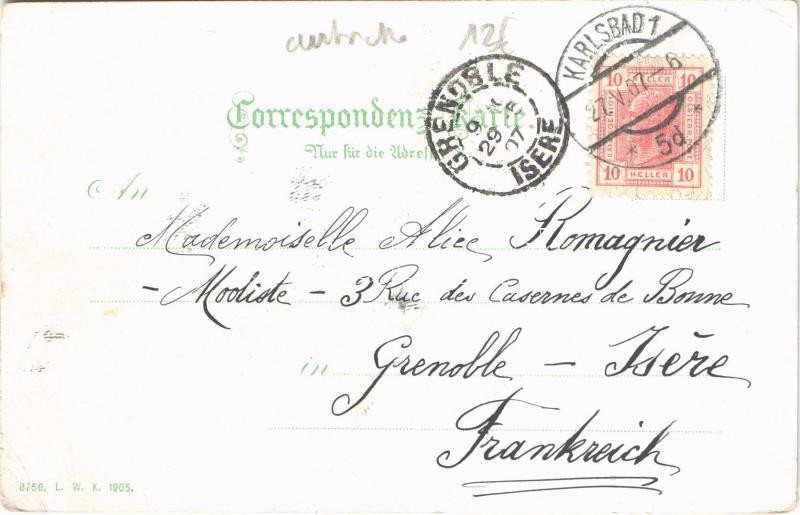 12€
KARLSBAD 1
27.V.07-6
* 5d *
10 10
HELLER
10 10
GRENOBLE
29
07
ISÈRE
Correspondenz-Karte.
Nur für die Adresse
An
Mademoiselle Alice Romagnier
- Modiste - 3 Rue des Casernes de Bonne
in Grenoble - Isère
Frankreich
8756. L. W. K. 1905.